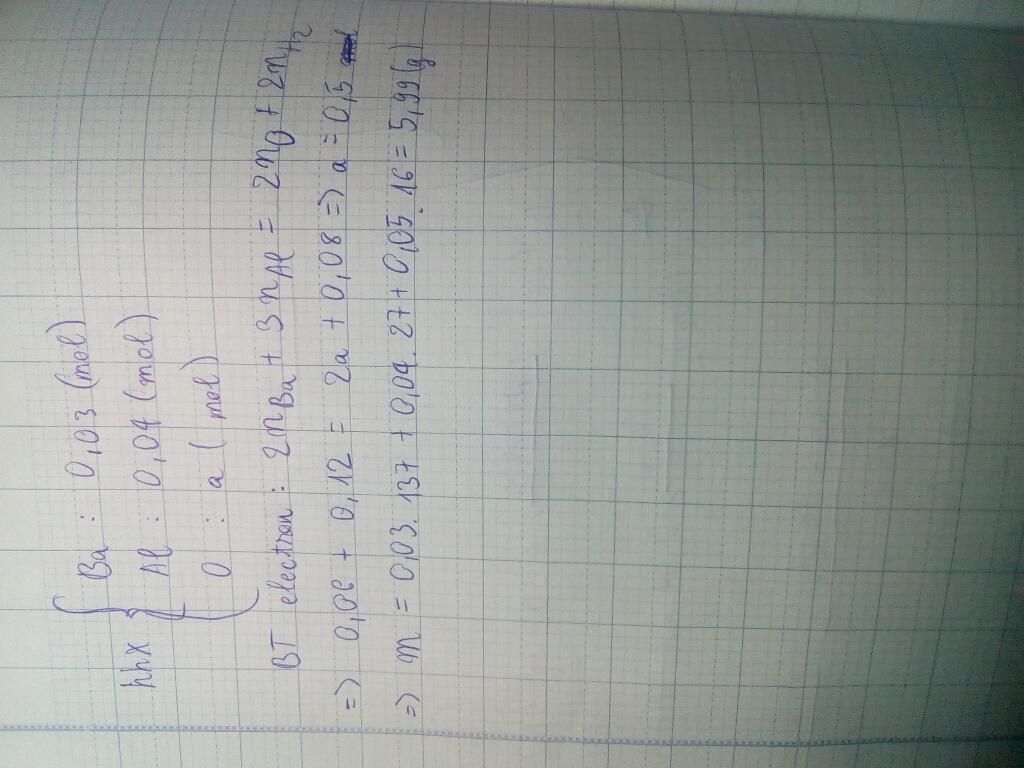 hhX { Ba : 0,03 (mol)
Al : 0,04 (mol)
O : a (mol)
BT electron : 2nBa + 3nAl = 2nO + 2nH2
=> 0,06 + 0,12 = 2a + 0,08 => a = 0,5
=> m = 0,03. 137 + 0,04. 27 + 0,05. 16 = 5,99 (g)